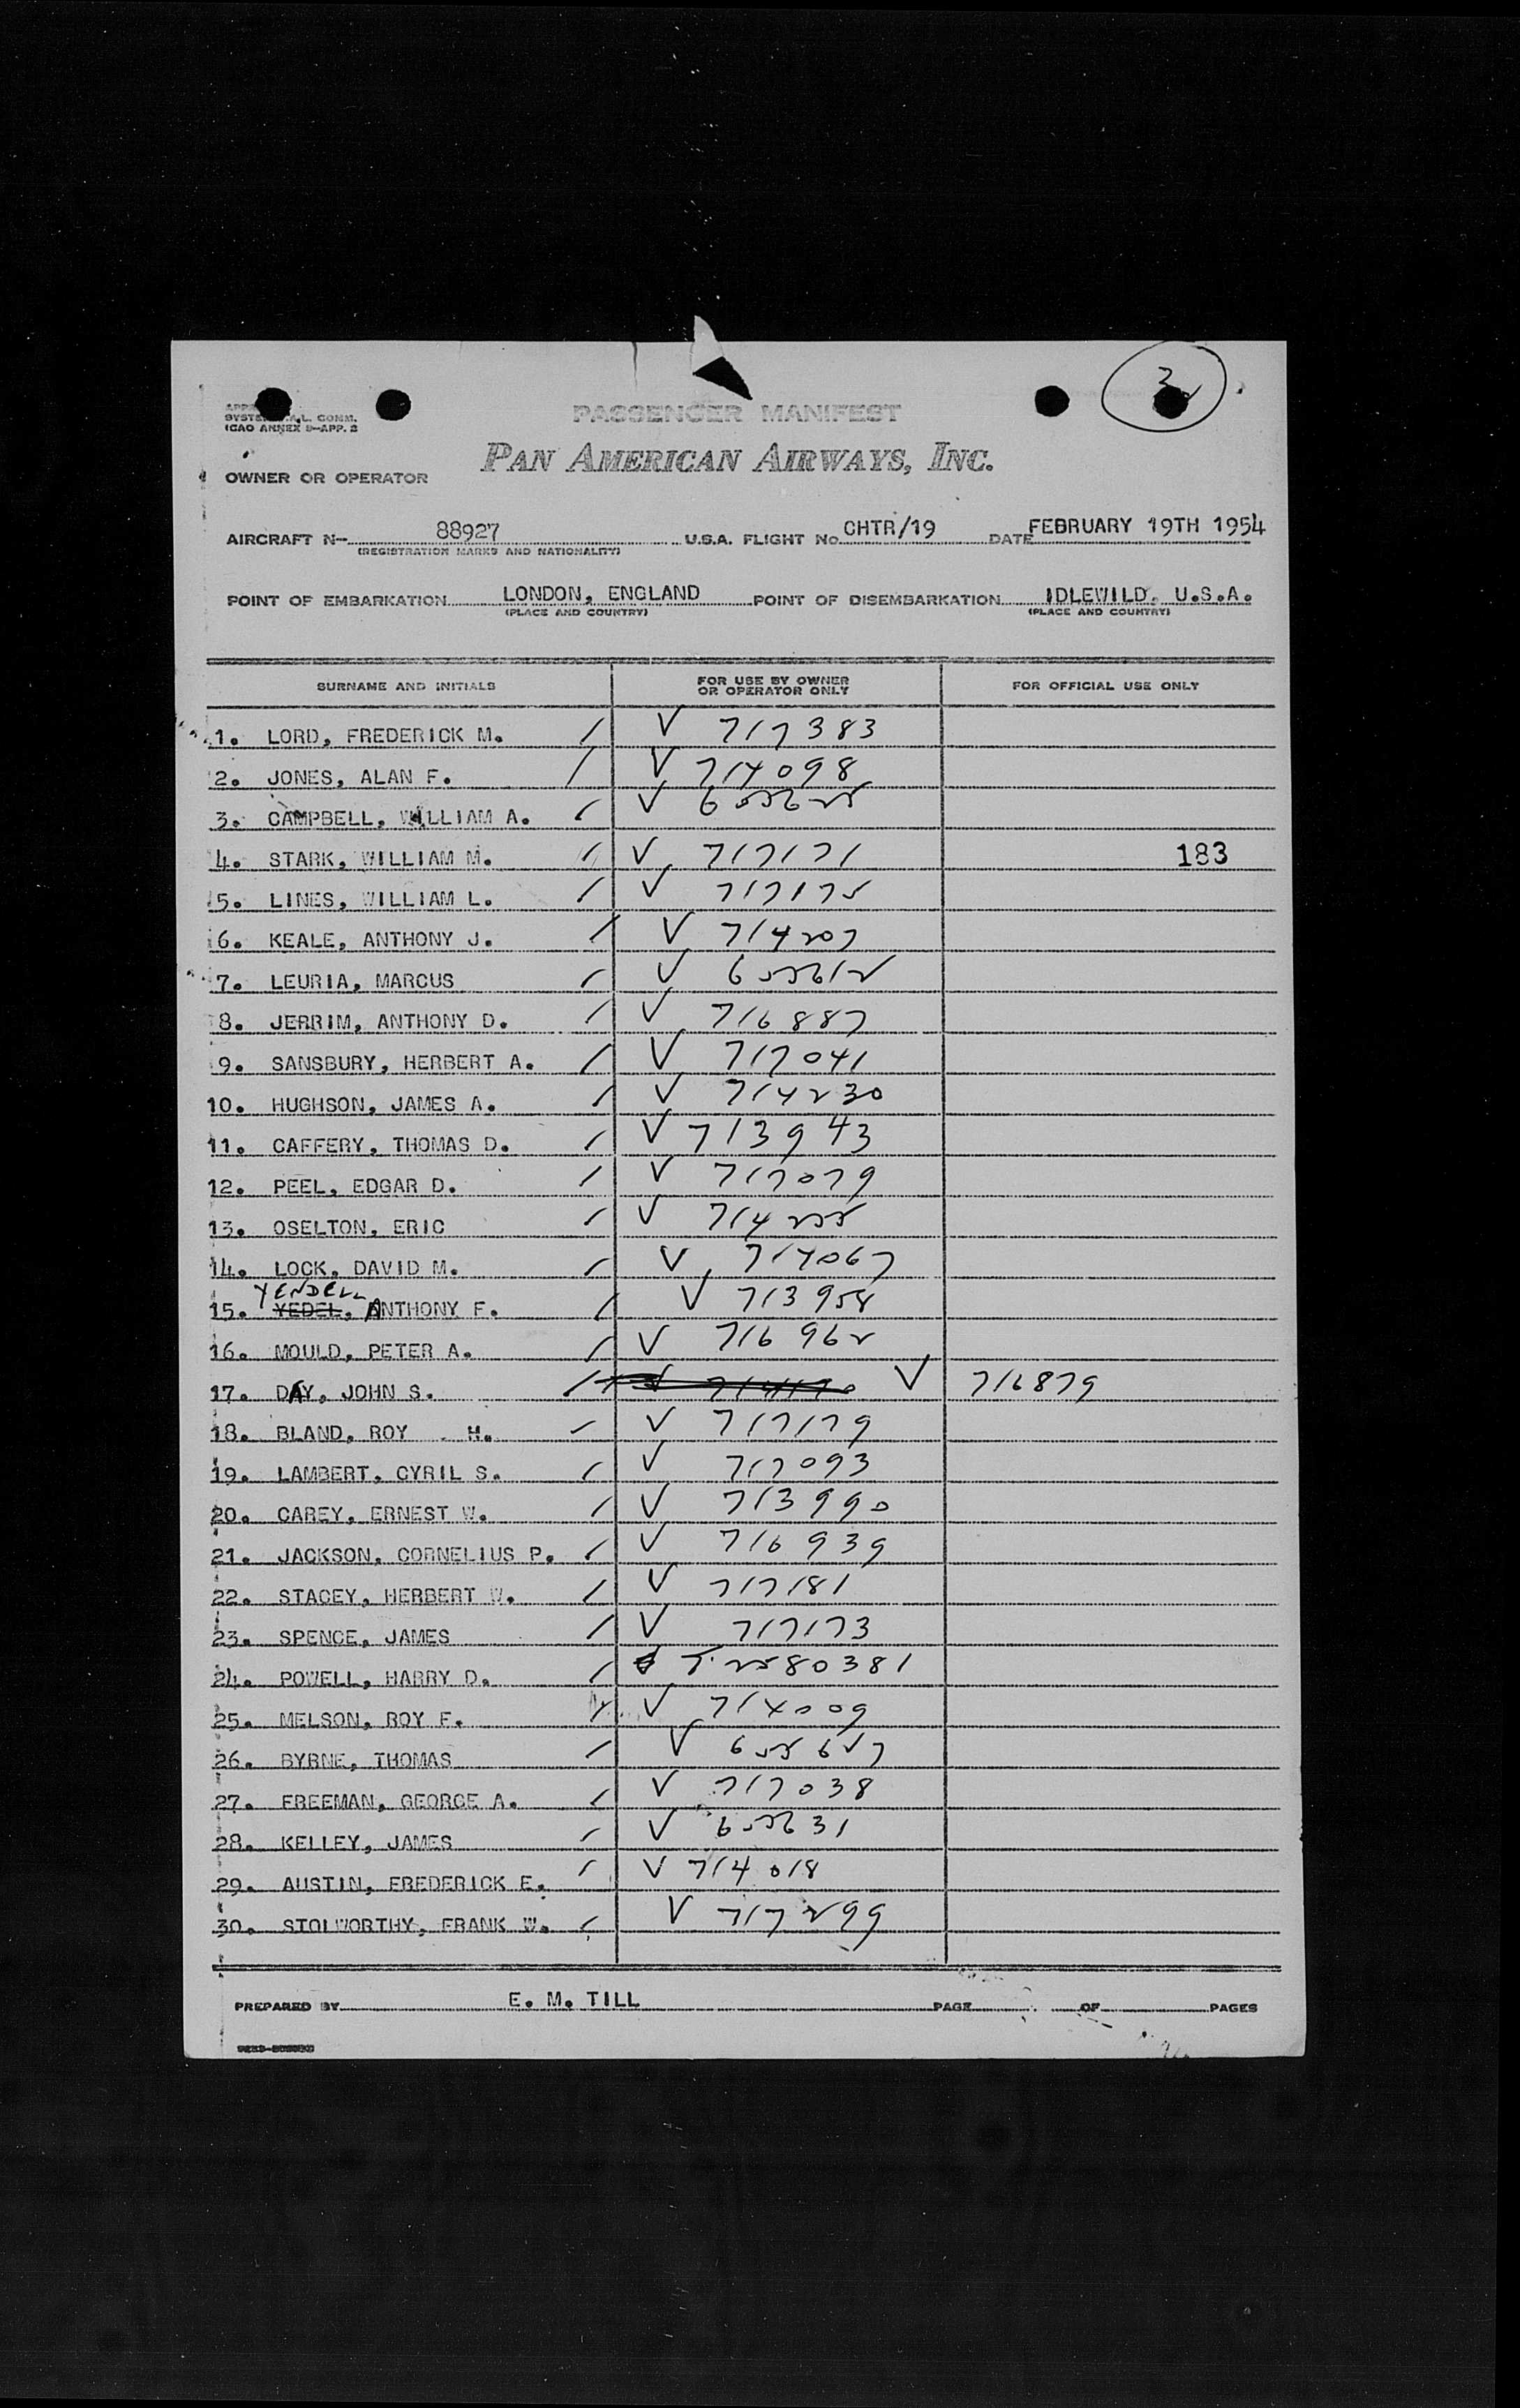 SYSTEM A.L. COMM.
ICAO ANNEX 9-APP. 2
PASSENGER MANIFEST
PAN AMERICAN AIRWAYS, INC.
OWNER OR OPERATOR
AIRCRAFT N- 88927 U.S.A. FLIGHT NO. CHTR/19 DATE FEBRUARY 19TH 1954
(REGISTRATION MARKS AND NATIONALITY)
POINT OF EMBARKATION LONDON, ENGLAND POINT OF DISEMBARKATION IDLEWILD, U.S.A.
(PLACE AND COUNTRY) (PLACE AND COUNTRY)
SURNAME AND INITIALS FOR USE BY OWNER OR OPERATOR ONLY FOR OFFICIAL USE ONLY
1. LORD, FREDERICK M. / V 717383
2. JONES, ALAN F. / V 714098
3. CAMPBELL, WILLIAM A. / V 655625
4. STARK, WILLIAM M. / V 717171 183
5. LINES, WILLIAM L. / V 717175
6. KEALE, ANTHONY J. / V 714207
7. LEURIA, MARCUS / V 655612
8. JERRIM, ANTHONY D. / V 716887
9. SANSBURY, HERBERT A. / V 717041
10. HUGHSON, JAMES A. / V 714230
11. CAFFERY, THOMAS D. / V 713943
12. PEEL, EDGAR D. / V 717079
13. OSELTON, ERIC / V 714255
14. LOCK, DAVID M. / V 714067
YENDELL
15. YEDEL, ANTHONY F. / V 713958
16. MOULD, PETER A. / V 716962
17. DAY, JOHN S. / V 716879
18. BLAND, ROY H. / V 717179
19. LAMBERT, CYRIL S. / V 717093
20. CAREY, ERNEST W. / V 713990
21. JACKSON, CORNELIUS P. / V 716939
22. STACEY, HERBERT W. / V 717181
23. SPENCE, JAMES / V 717173
24. POWELL, HARRY D. / T.2580381
25. MELSON, ROY F. / V 714009
26. BYRNE, THOMAS / V 655627
27. FREEMAN, GEORGE A. / V 717038
28. KELLEY, JAMES / V 655631
29. AUSTIN, FREDERICK E. / V 714018
30. STOLWORTHY, FRANK W. / V 717299
PREPARED BY E. M. TILL PAGE OF PAGES